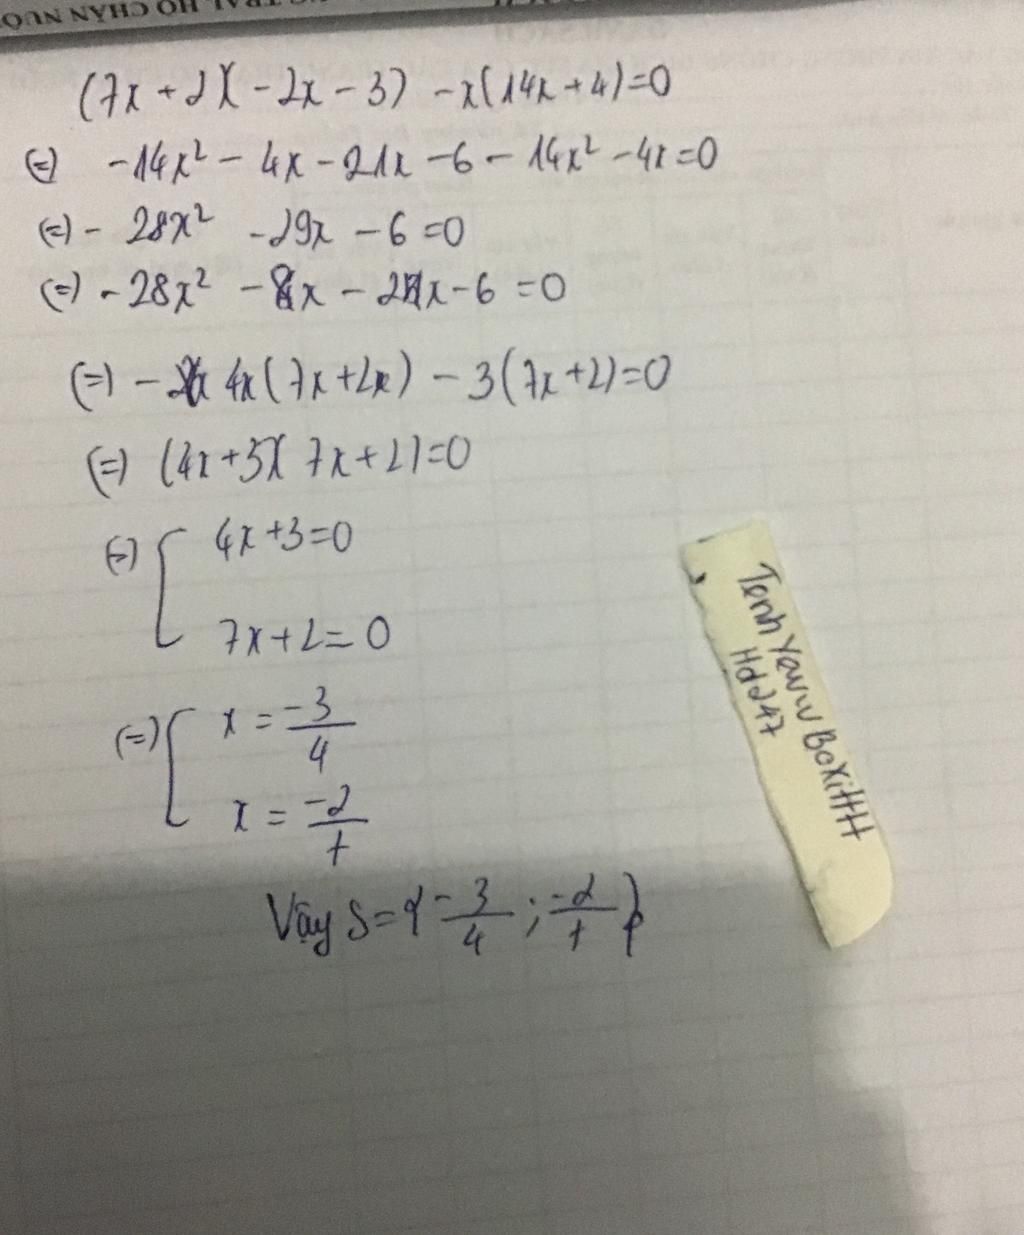 HỘ CHĂN NUÔ
(7x + 2)(-2x - 3) - x(14x + 4) = 0
(=) -14x² - 4x - 21x - 6 - 14x² - 4x = 0
(=) - 28x² - 29x - 6 = 0
(=) - 28x² - 8x - 21x - 6 = 0
(=) - 4x (7x + 2) - 3(7x + 2) = 0
(=) (4x + 3)(7x + 2) = 0
(=) [ 4x + 3 = 0
7x + 2 = 0
(=) [ x = -3/4
x = -2/7
Vậy S = { -3/4 ; -2/7 }
Tenh Yavw BoXiHH
Hd247